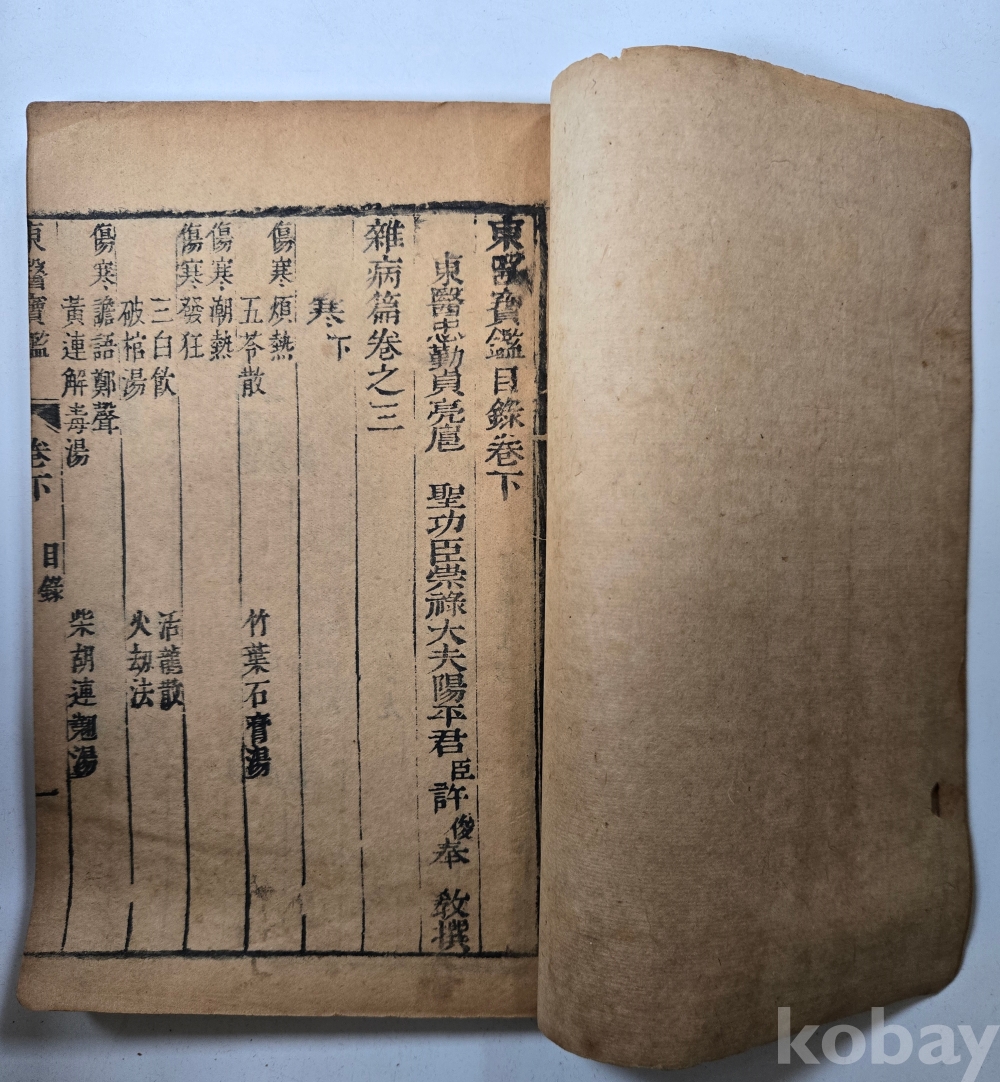 東醫寶鑑目錄卷下
東醫忠勤貞亮扈 聖功臣崇祿大夫陽平君臣許俊奉 教撰
雜病篇卷之三
寒下
傷寒煩熱
五苓散 竹葉石膏湯
傷寒潮熱
傷寒發狂
三白飮 活龍散
破棺湯 火劫法
傷寒譫語鄭聲
黃連解毒湯 柴胡連翹湯
東醫寶鑑 卷下 目錄 一
kobay